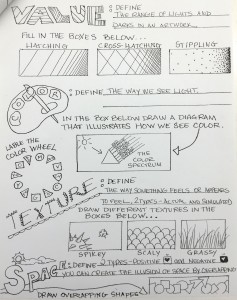 VALUE : DEFINE THE RANGE OF LIGHTS AND
DARKS IN AN ARTWORK
FILL IN THE BOXES BELOW...
HATCHING CROSS-HATCHING STIPPLING
COLOR
: DEFINE THE WAY WE SEE LIGHT.
IN THE BOX BELOW DRAW A DIAGRAM
THAT ILLUSTRATES HOW WE SEE COLOR.
LABLE THE
COLOR WHEEL
THE
COLOR
SPECTRUM
TEXTURE : DEFINE
THE WAY SOMETHING FEELS OR APPEARS
TO FEEL. 2 TYPES - ACTUAL AND SIMULATED
DRAW DIFFERENT TEXTURES IN THE
BOXES BELOW...
SPIKEY SCALY GRASSY
SPACE : DEFINE 2 TYPES - POSITIVE AND NEGATIVE
YOU CAN CREATE THE ILLUSION OF SPACE BY OVERLAPPING
DRAW OVERLAPPING SHAPES